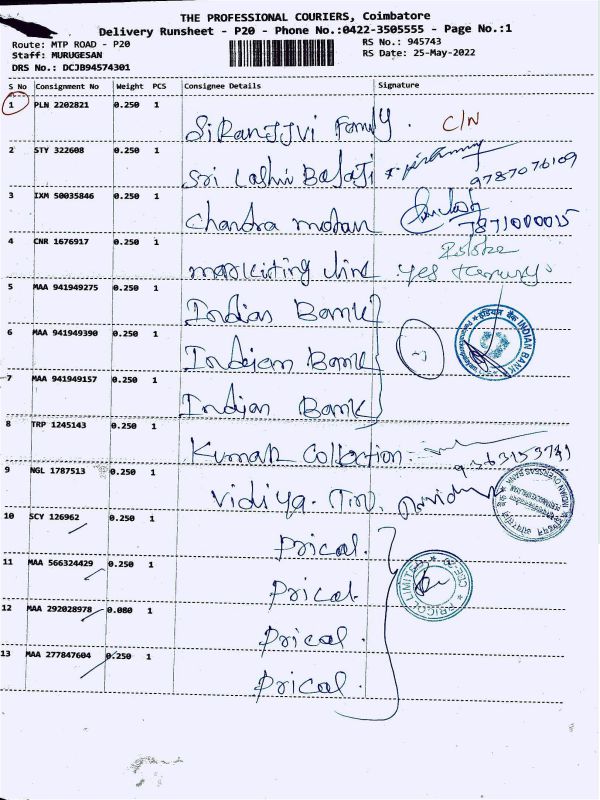 THE PROFESSIONAL COURIERS, Coimbatore
Delivery Runsheet - P20 - Phone No.:0422-3505555 - Page No.:1
Route: MTP ROAD - P20
RS No.: 945743
Staff: MURUGESAN
RS Date: 25-May-2022
DRS No.: DCJB94574301
S No Consignment No Weight PCS Consignee Details Signature
1 PLN 2202821 0.250 1
Family. C/N
2 STY 322608 0.250 1
Sri
9787076109
3 IXM 50035846 0.250 1
Chandra mohan
7871000015
4 CNR 1676917 0.250 1
5 MAA 941949275 0.250 1
Indian Bank
6 MAA 941949390 0.250 1
Indian Bank
INDIAN BANK
7 MAA 941949157 0.250 1
Indian Bank
8 TRP 1245143 0.250 1
Kumar Collection
9 NGL 1787513 0.250 1
Vidiya.
INDIAN OVERSEAS BANK
10 SCY 126962 0.250 1
Prical.
11 MAA 566324429 0.250 1
Prical.
PRICOL LIMITED
12 MAA 292028978 0.080 1
Prical.
13 MAA 277847604 0.250 1
Prical.